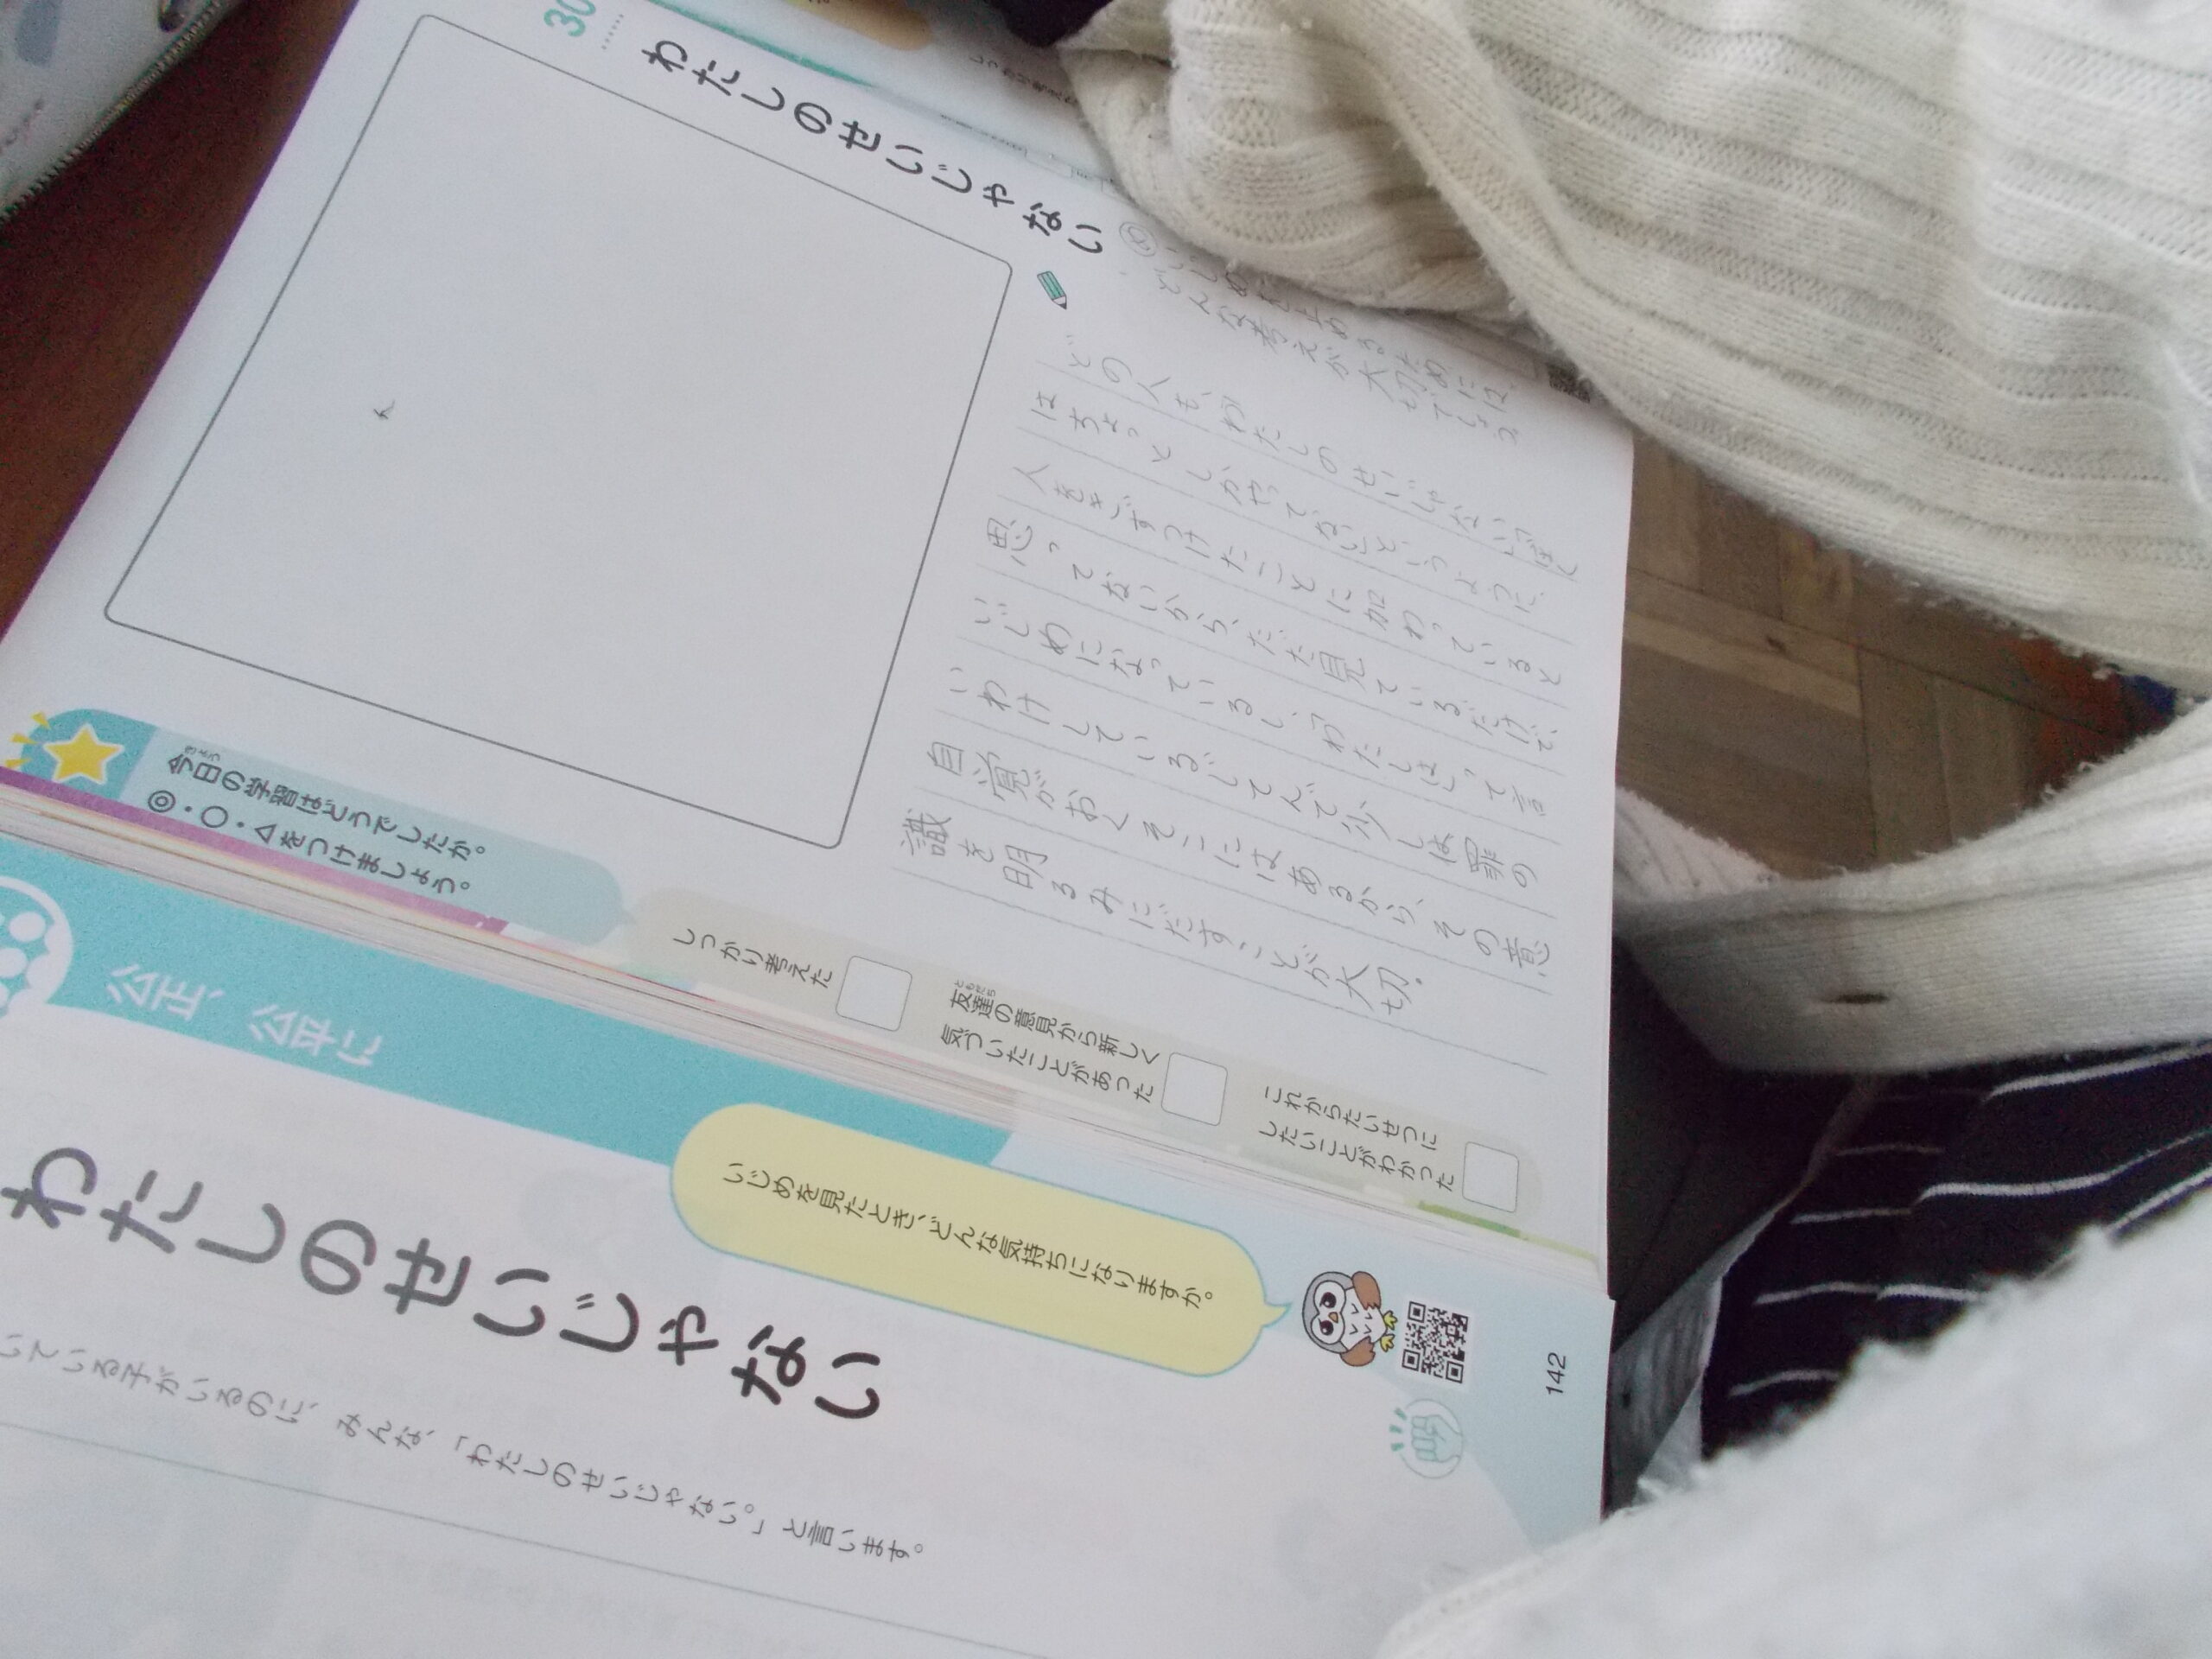 30
わたしのせいじゃない
め
いじめを止めるためには、
どんな考えが大切でしょう
どの人も、「わたしのせいじゃない」「ぼく
はちょっとしかやってない」というように、
人をきずつけたことに加わっていると
思ってないから、ただ見ているだけで、
いじめになっているし、「わたしは」って言
いわけしているじてんで少しは罪の
自覚がおくそこにはあるから、その意
識を明るみにだすことが大切。
今日の学習はどうでしたか。
きょう
◎・○・△をつけましょう。
しっかり考えた
友達の意見から新しく
ともだち
気づいたことがあった
これからたいせつに
したいことがわかった
公正、公平に
いじめを見たとき、どんな気持ちになりますか。
わたしのせいじゃない
いている子がいるのに、みんな、「わたしのせいじゃない。」と言います。
142